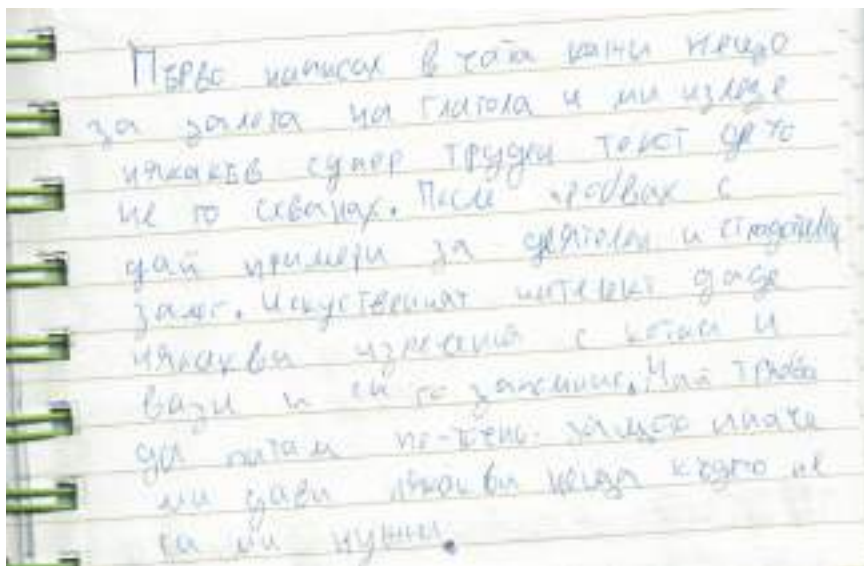 Първо написах в чата кажи нещо
за залога на глагола и ми излезе
някакъв супер труден текст дето
не го схванах. После пробвах с
дай примери за деятелен и страдателен
залог. Искуственият интелект даде
някакви изречения с котки и
вази и си го запомних. Май трябва
да питам по-точно защото иначе
ми дава някакви неща където не
са ми нужни.